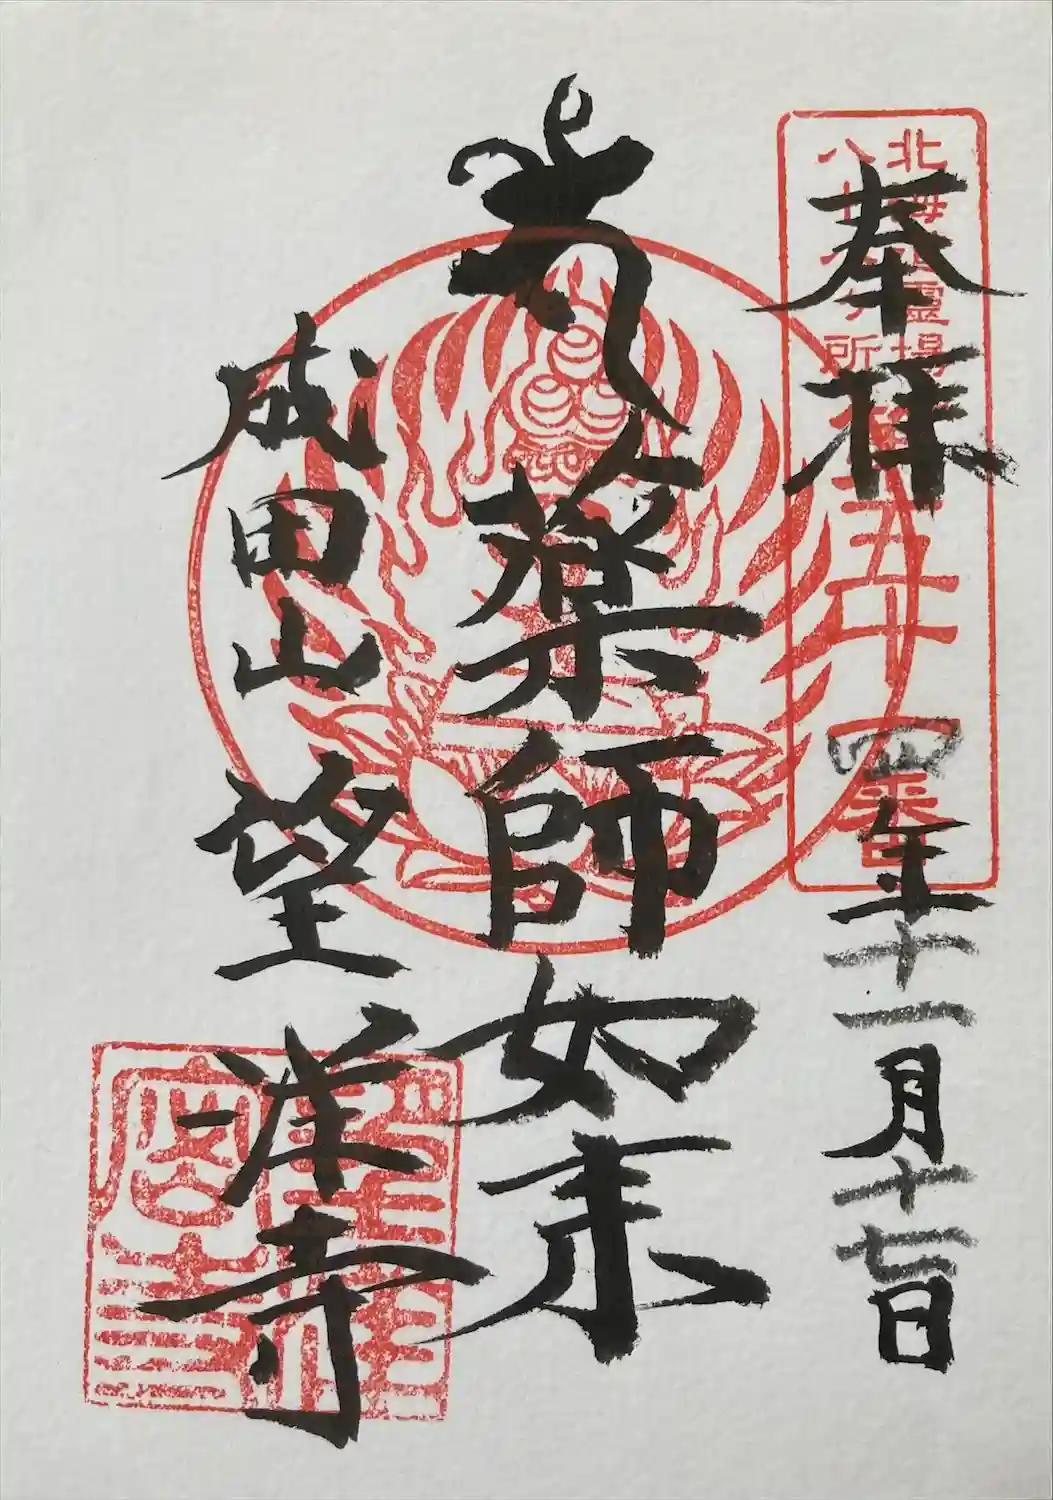 奉拝
四年十一月十七日
北海道霊場
八十八ヶ所
第五十四番
薬師如来
成田山 望洋寺